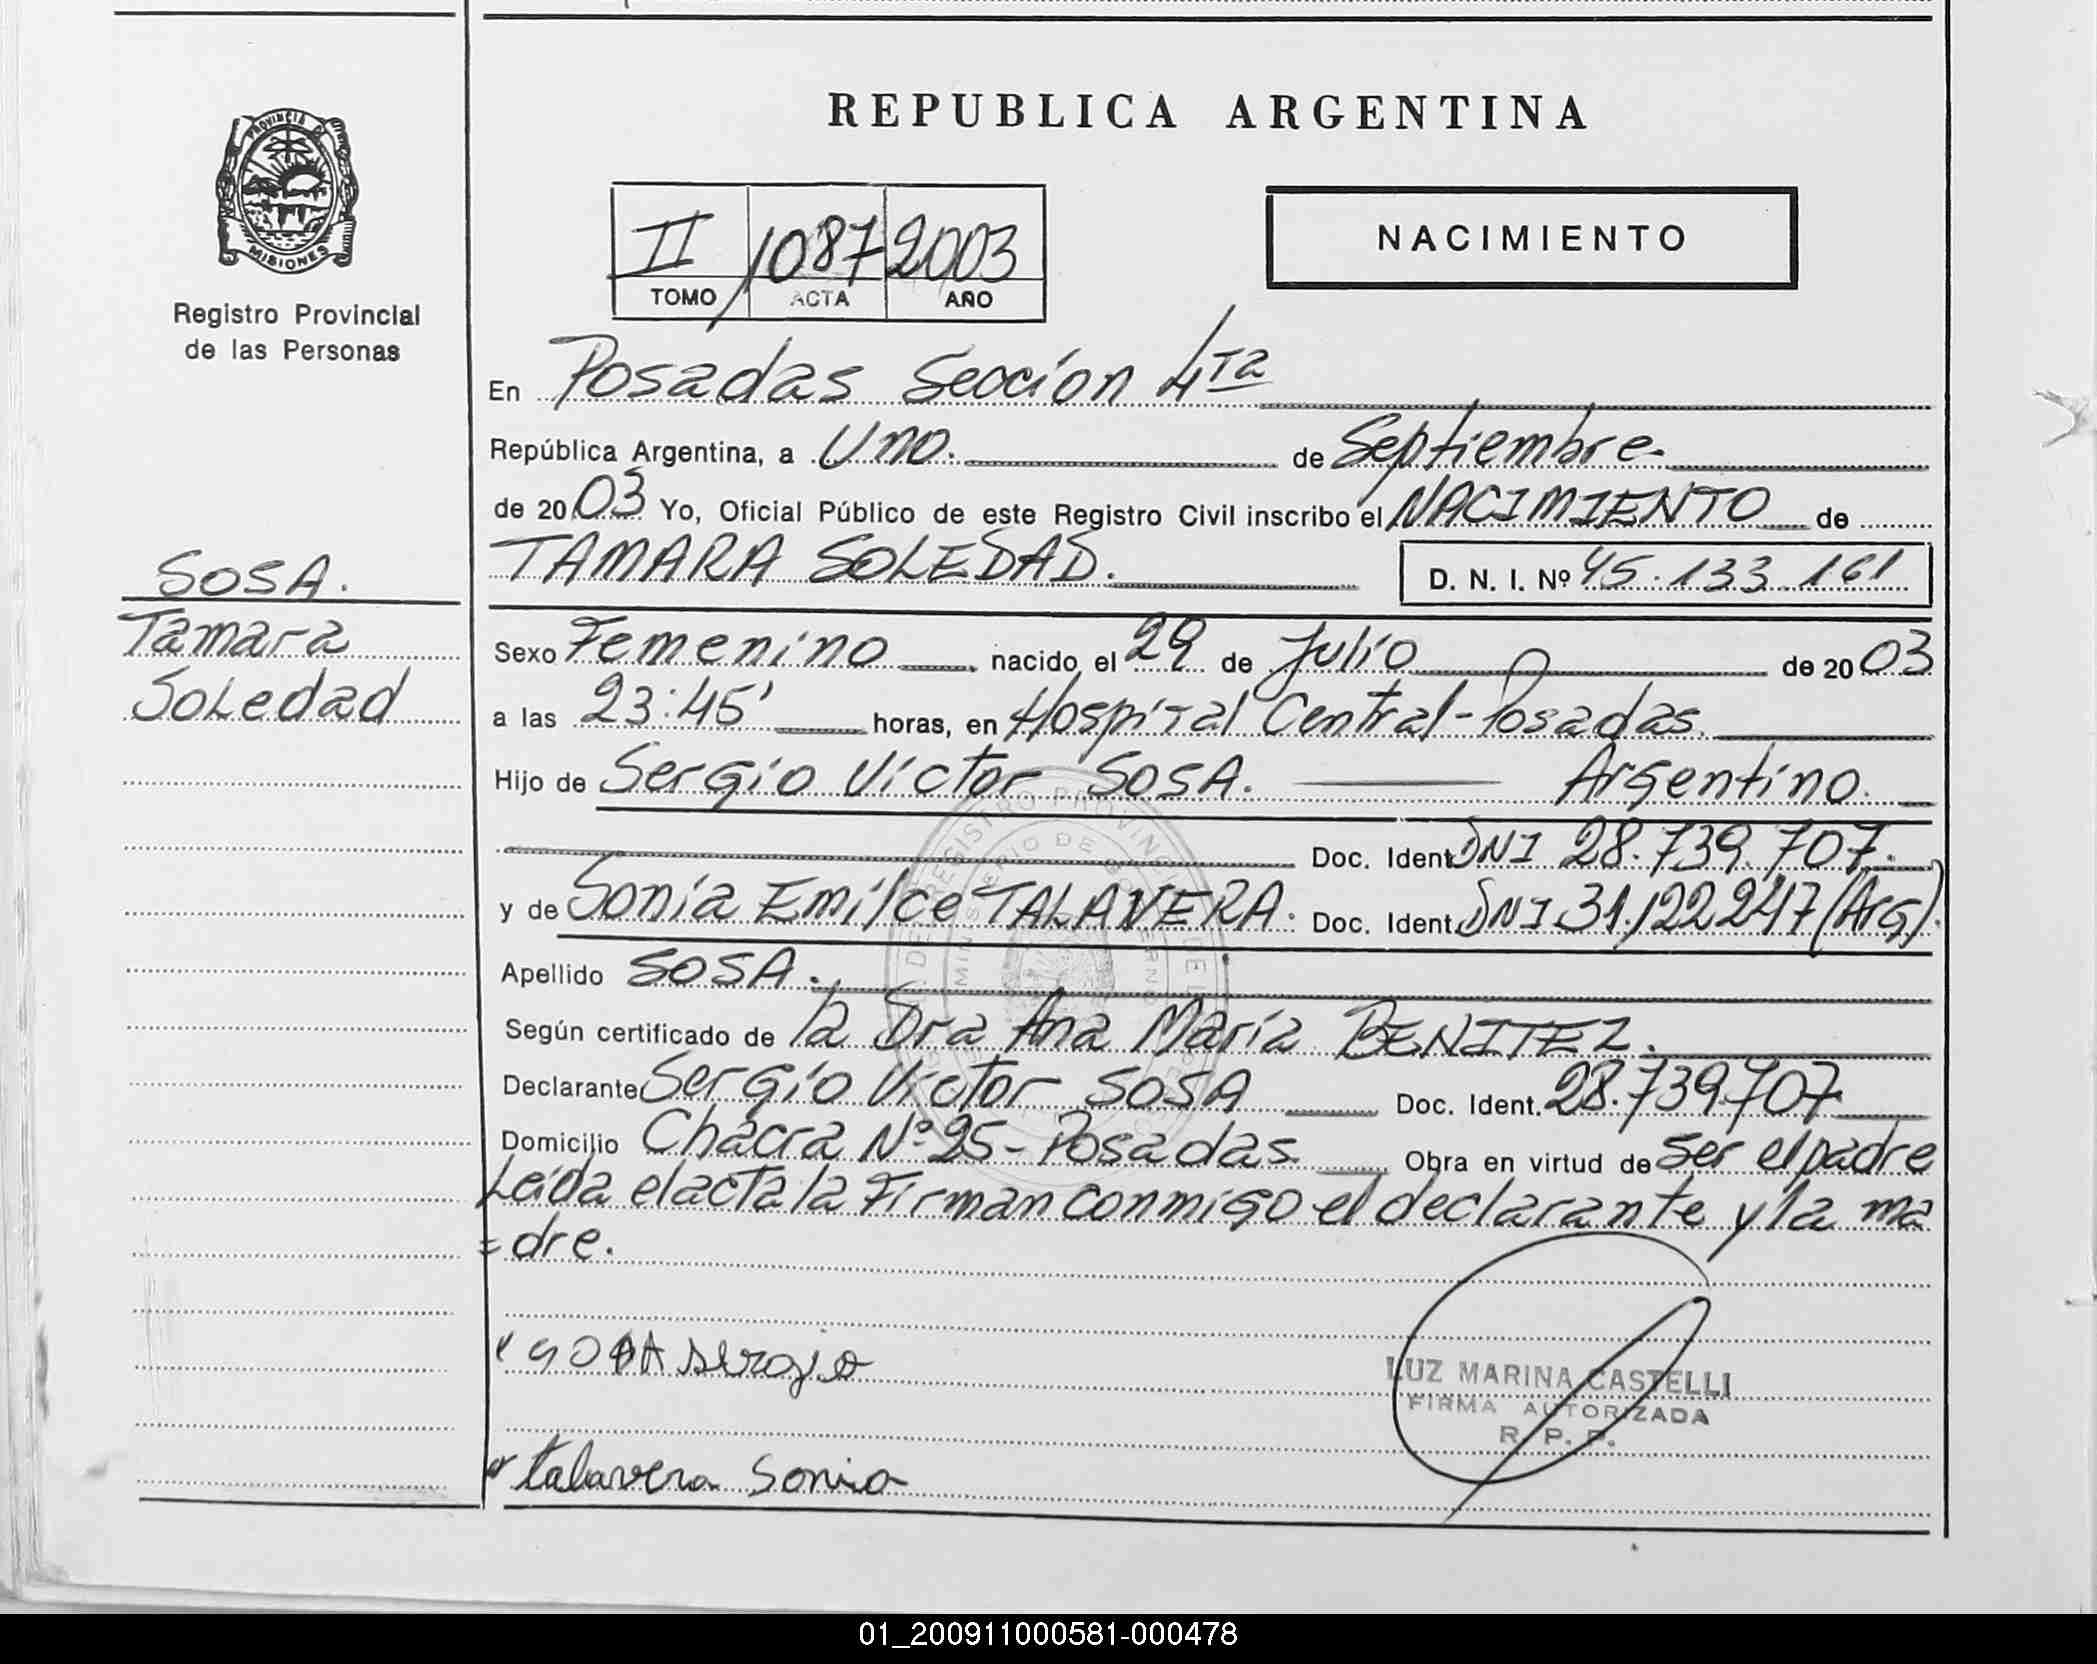 REPUBLICA ARGENTINA
PROVINCIA DE
MISIONES
Registro Provincial
de las Personas
II 1087 2003
TOMO ACTA AÑO
NACIMIENTO
En Posadas Sección 4ta
República Argentina, a Uno. de Septiembre.
de 2003 Yo, Oficial Público de este Registro Civil inscribo el NACIMIENTO de
TAMARA SOLEDAD. D. N. I. Nº 45.133.161
SOSA.
Tamara
Soledad
Sexo Femenino nacido el 29 de Julio de 2003
a las 23:45' horas, en Hospital Central-Posadas.
Hijo de Sergio Victor SOSA. Argentino.
Doc. Ident. DNI 28.739.707.
y de Sonia Emilce TALAVERA. Doc. Ident. DNI 31.122.247 (Arg).
Apellido SOSA.
Según certificado de la Dra Ana María BENITEZ.
Declarante Sergio Victor SOSA Doc. Ident. 28.739.707
Domicilio Chacra Nº 25-Posadas Obra en virtud de ser el padre
Leída el acta la Firman conmigo el declarante y la ma
=dre.
SOSA Sergio
LUZ MARINA CASTELLI
FIRMA AUTORIZADA
R. P. P.
talavera Sonia
01_200911000581-000478